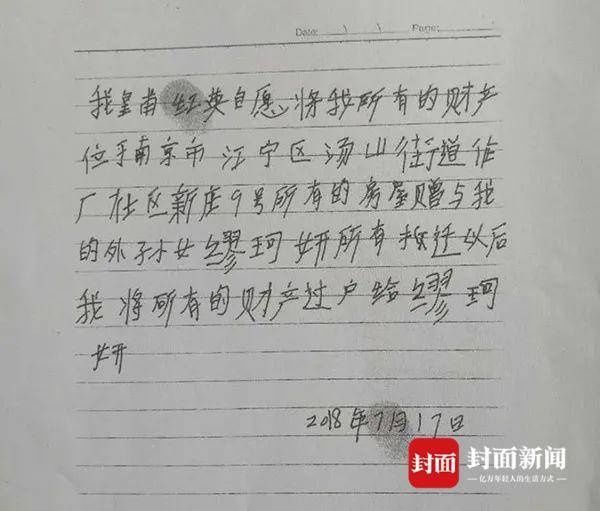 Date: \ \ Page:
我皇甫红英自愿、将我所有的财产
位于南京市江宁区汤山街道作
厂社区新庄9号所有的房屋赠与我
的外孙女缪珂妍所有拆迁以后
我将所有的财产过户给缪珂
妍
2018年7月17日
封面 封面新闻
亿万年轻人的生活方式